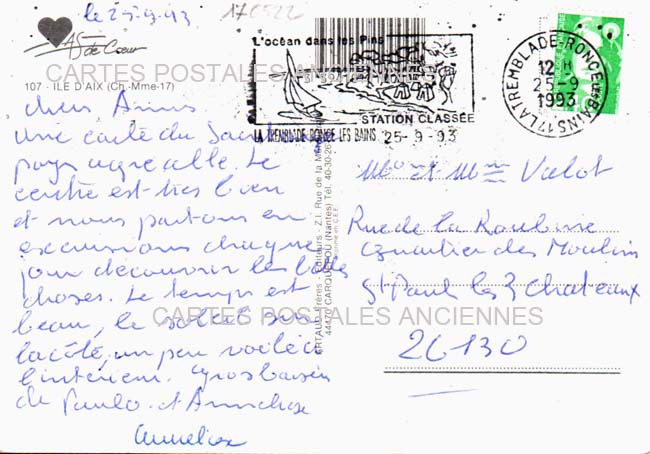 le 25-9-93
170522
As de Cœur
107 - ILE D'AIX (Ch.-Mme-17)
L'océan dans les Pins
STATION CLASSÉE
LA TREMBLADE RONCE LES BAINS 25-9-93
17 LA TREMBLADE-RONCE LES BAINS
12 H
25-9
1993
CARTES POSTALES ANCIENNES
chers Amis
une carte du
pays agréable. Le
centre est très bien
et nous partons en
excursions chaque
jour découvrir les belles
choses. Le temps est
beau, le soleil sur
la côte, un peu voilé à
l'intérieur. Gros baisers
de Paulo et
ARTAUD Frères - Editeurs - Z.I. Rue de la Mé
44470 CARQUEFOU (Nantes) Tél. 40-30-26
Mr et Mme Valot
Rue de la Roubine
Quartier des Moulins
St Paul les 3 Chateaux
26130
CARTES POSTALES ANCIENNES